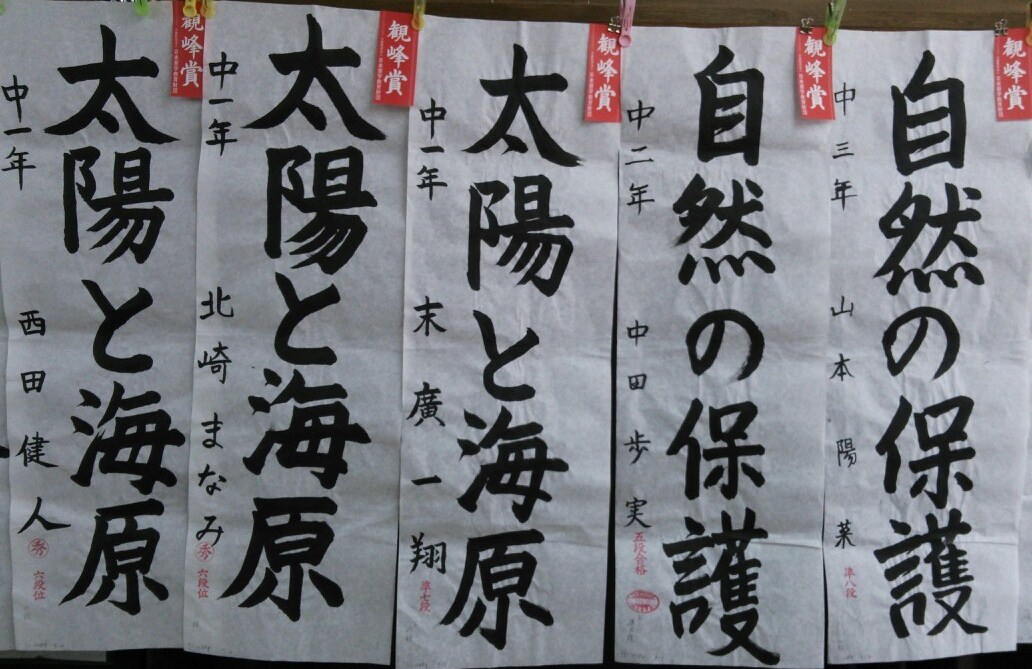 自然の保護
中三年 山本陽菜
準八段
観峰賞
自然の保護
中二年 中田歩実
五段合格
観峰賞
太陽と海原
中一年 末廣一翔
準七段
観峰賞
太陽と海原
中一年 北崎まなみ
秀 六段位
観峰賞
太陽と海原
中一年 西田健人
秀 六段位
観峰賞